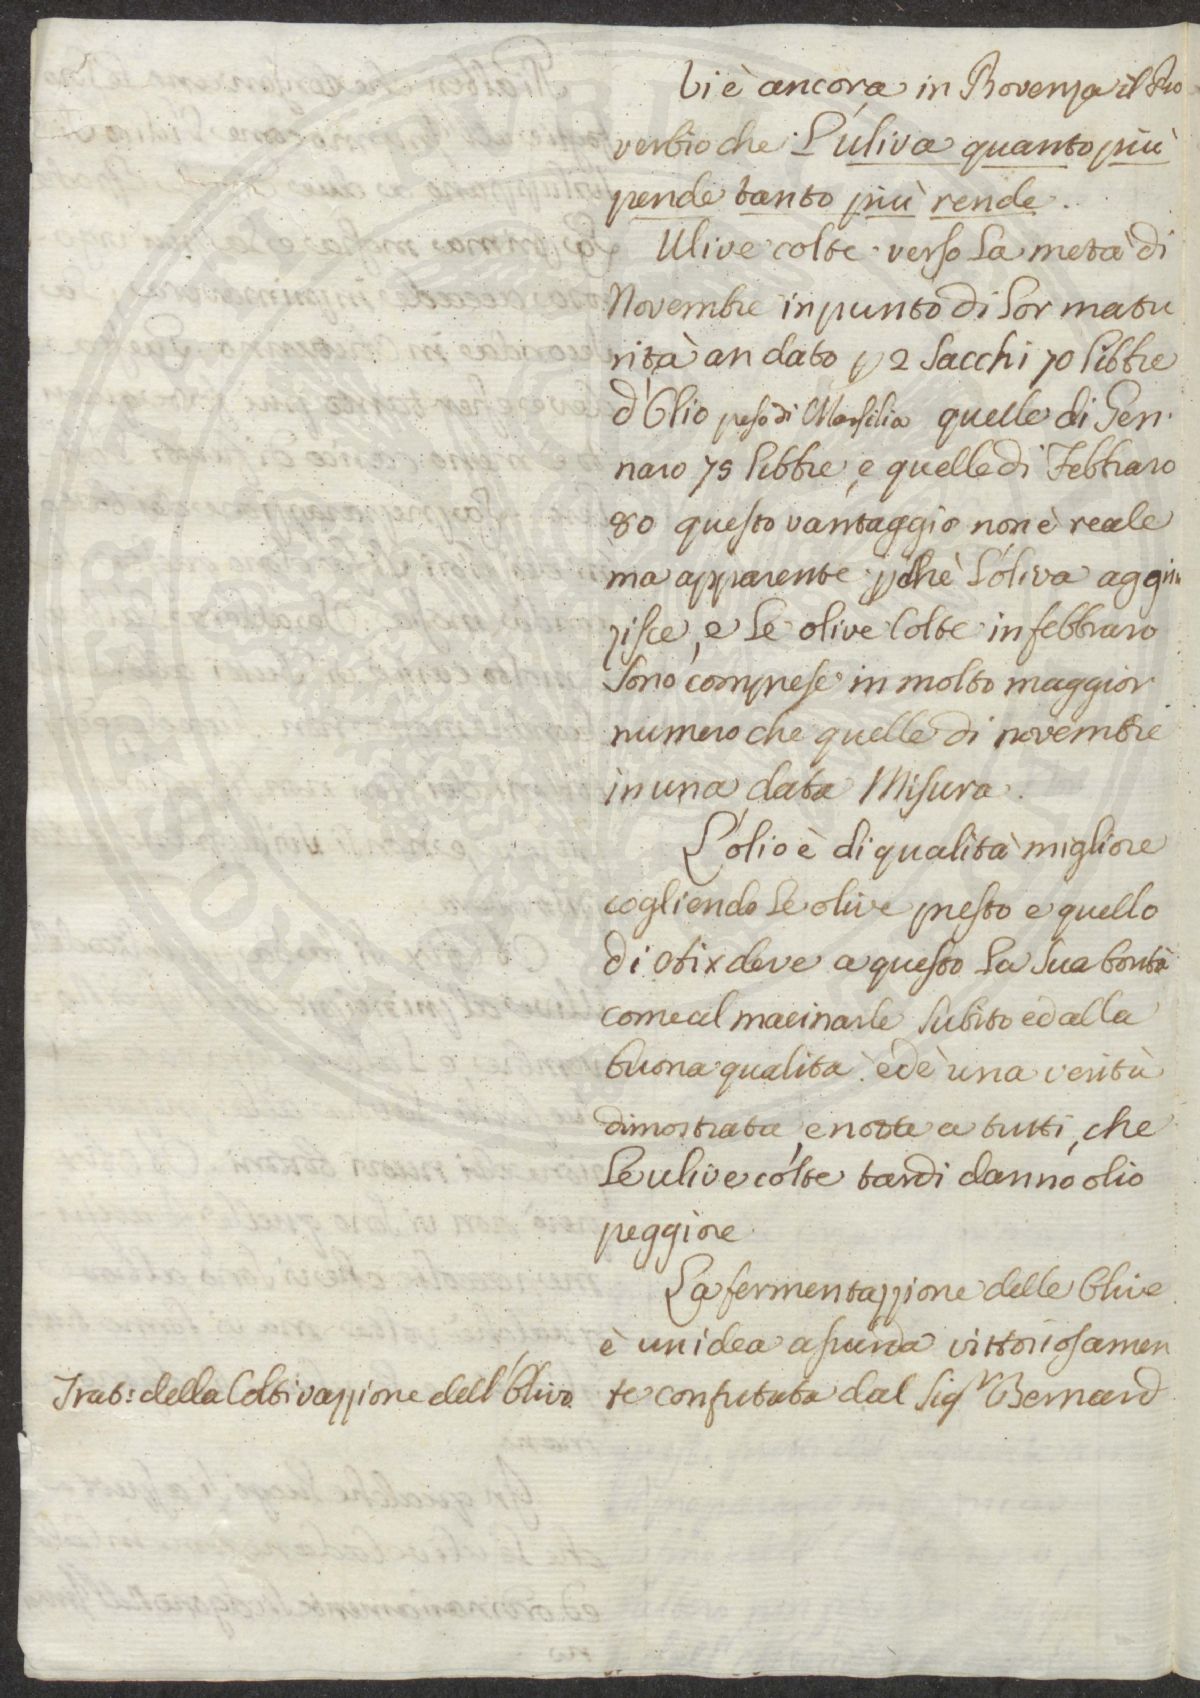 Vi è ancora in Provenza il Pro
verbio che L'uliva quanto più
pende tanto più rende.
Ulive colte verso La metà di
Novembre in punto di Lor matu
rità an dato p 2 Sacchi 70 Libbre
d'Olio peso di Marsilia quelle di Gen
naro 75 Libbre, e quelle di Febbraro
80 questo vantaggio non è reale
ma apparente pchè L'oliva aggrin
zisce, e Le olive Colte in febbraro
Sono comprese in molto maggior
numero che quelle di novembre
in una data Misura.
L'olio è di qualità migliore
cogliendo Le olive presto e quello
di Aix deve a questo La Sua bontà
come al macinarle Subito ed alla
buona qualità. ed è una verità
dimostrata, e notta a tutti, che
Le ulive colte tardi danno olio
peggiore
La fermentazzione delle Olive
è un idea assurda vittoriosamen
Trat: della Coltivazzione dell'Olivo.
te confutata dal Sig.r Bernard